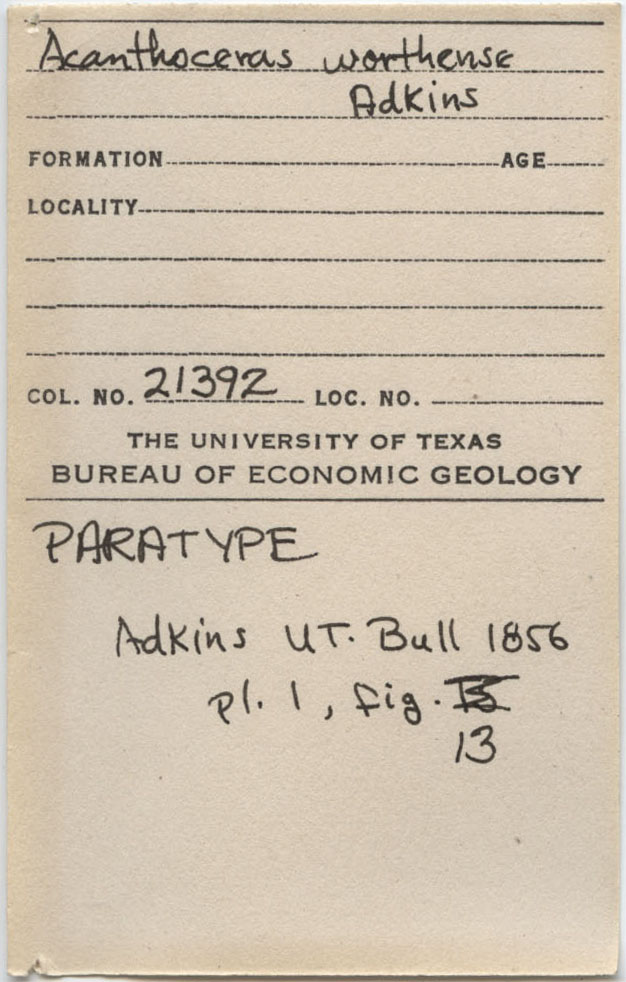 Acanthoceras worthense
Adkins
FORMATION AGE
LOCALITY
COL. NO. 21392 LOC. NO.
THE UNIVERSITY OF TEXAS
BUREAU OF ECONOMIC GEOLOGY
PARATYPE
Adkins UT. Bull 1856
pl. 1, fig.
13